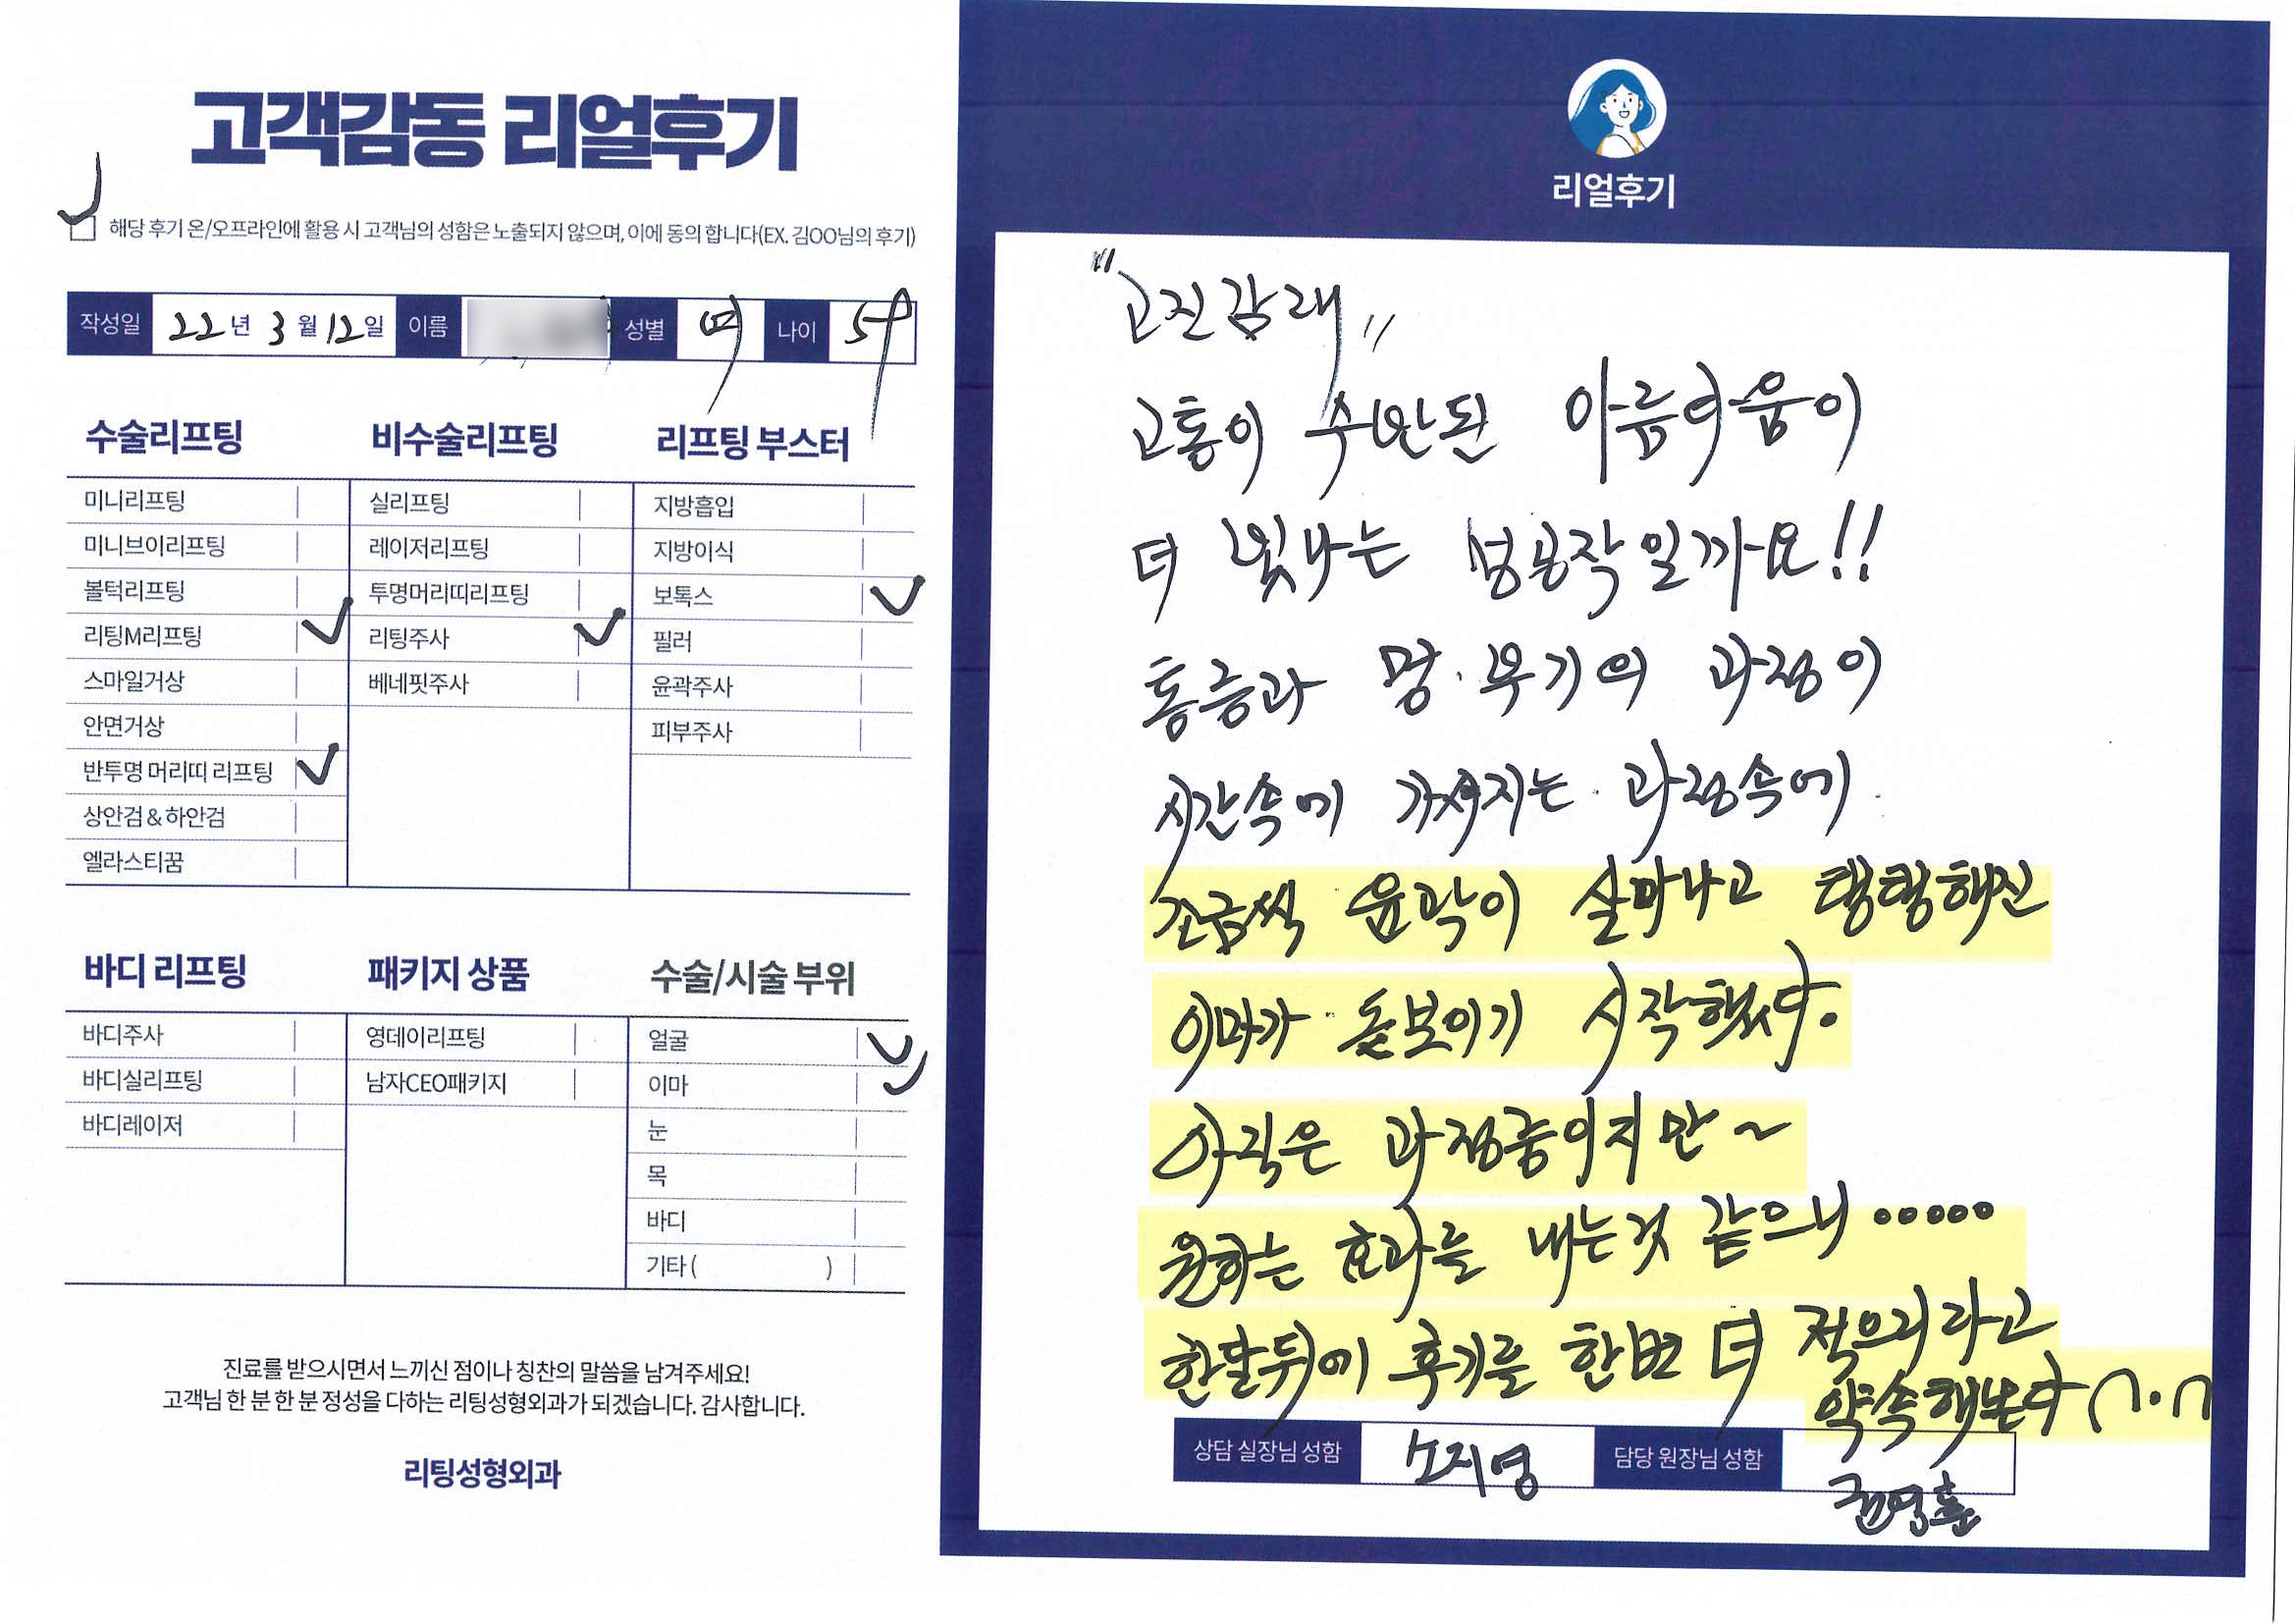 고객감동 리얼후기
해당 후기 온/오프라인에 활용 시 고객님의 성함은 노출되지 않으며, 이에 동의 합니다(EX. 김OO님의 후기)
작성일 22년 3월 12일 이름 성별 여 나이 59
수술리프팅
미니리프팅
미니브이리프팅
볼턱리프팅
리팅M리프팅
스마일거상
안면거상
반투명 머리띠 리프팅
상안검&하안검
엘라스티꿈
비수술리프팅
실리프팅
레이저리프팅
투명머리띠리프팅
리팅주사
베네핏주사
리프팅 부스터
지방흡입
지방이식
보톡스
필러
윤곽주사
피부주사
바디 리프팅
바디주사
바디실리프팅
바디레이저
패키지 상품
영데이리프팅
남자CEO패키지
수술/시술 부위
얼굴
이마
눈
목
바디
기타 ( )
진료를 받으시면서 느끼신 점이나 칭찬의 말씀을 남겨주세요!
고객님 한 분 한 분 정성을 다하는 리팅성형외과가 되겠습니다. 감사합니다.
리팅성형외과
리얼후기
"고진감래"
고통이 수반된 아름다움이
더 빛나는 성공작일까요!!
통증과 멍·부기의 과정이
시간속에 가셔지는 과정속에
조금씩 윤곽이 살아나고 탱탱해진
이마가 돋보이기 시작했다.
아직은 과정중이지만~
원하는 효과를 내는것 같으니 •••••
한달뒤에 후기를 한번 더 적으리라고
약속해본다 ∩.∩
상담 실장님 성함 노지영 담당 원장님 성함
권영훈